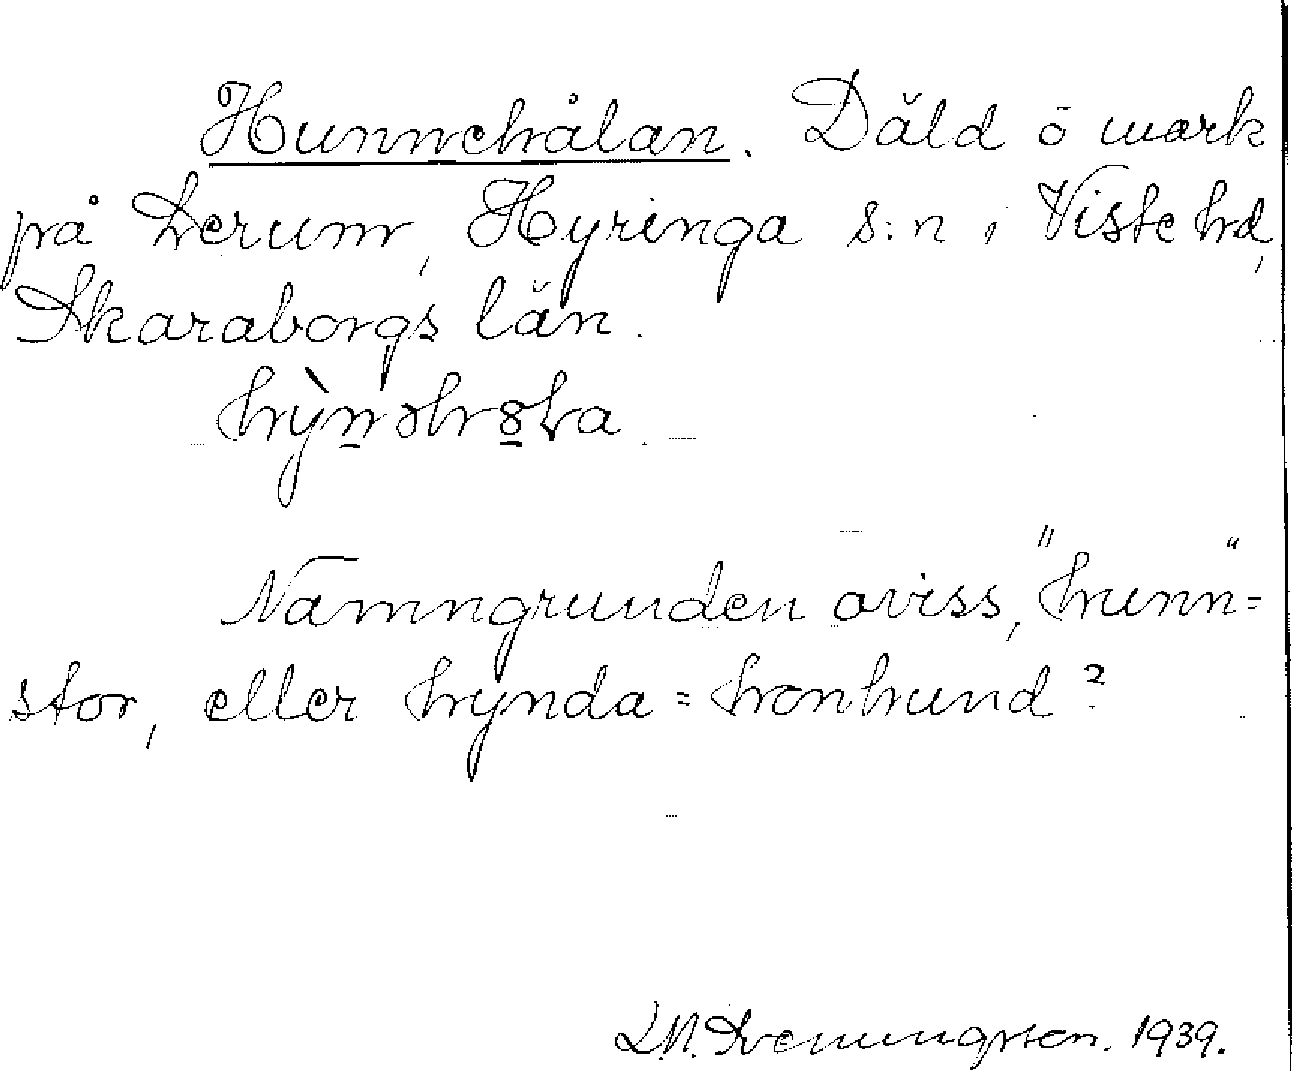 Hunnehålan. Däld ö mark
på Lerum, Hyringa s:n i Viste hd,
Skaraborgs län.
Namngrunden oviss, "hunn"=
stor, eller hynda = honhund?
L.N. 1939.